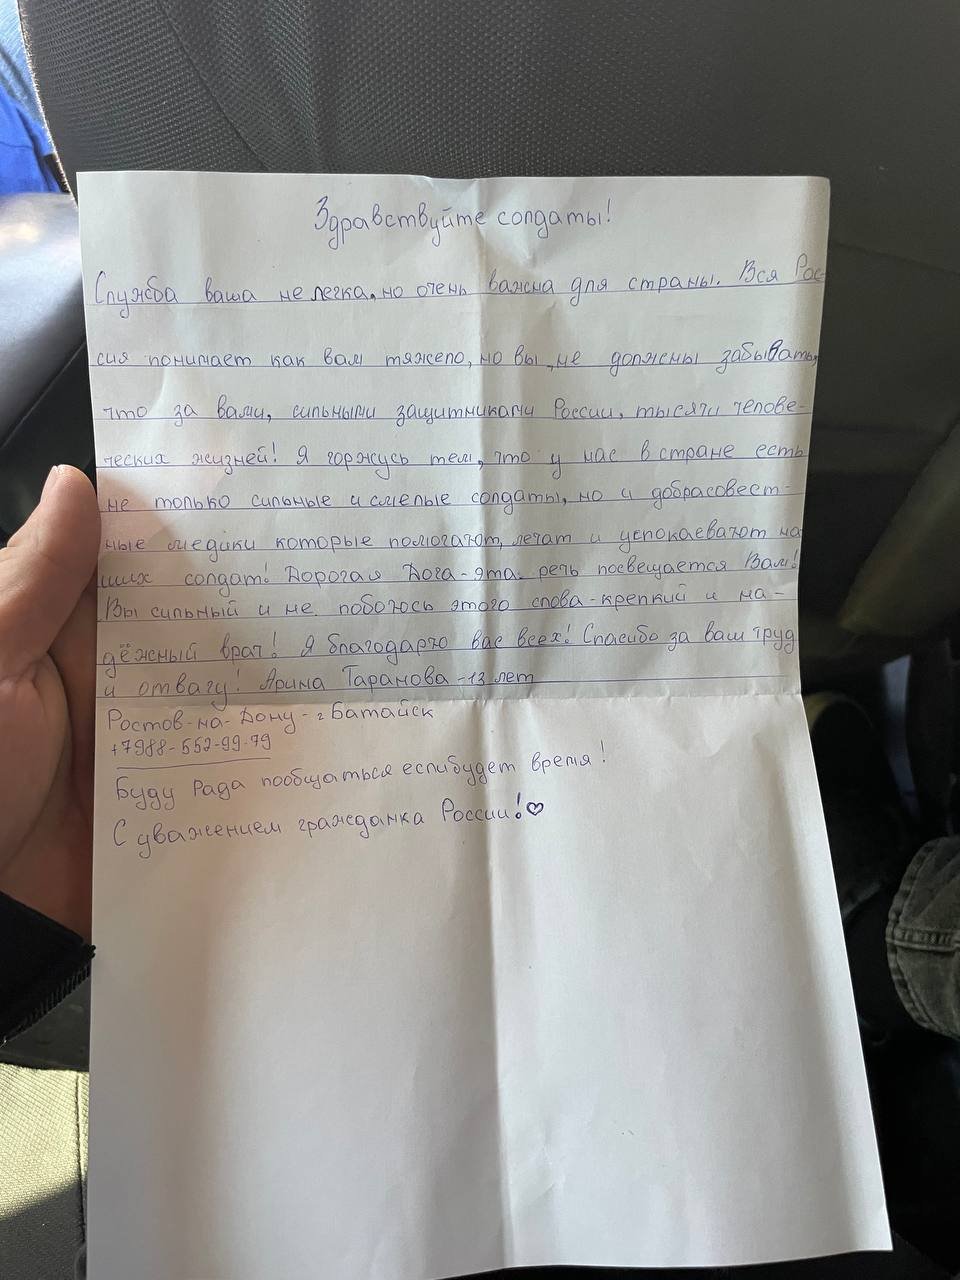 Здравствуйте солдаты!
Служба ваша не легка, но очень важна для страны. Вся Рос-
сия понимает как вам тяжело, но вы, не должны забывать,
что за вами, сильными защитниками России, тысячи челове-
ческих жизней! Я горжусь тем, что у нас в стране есть
не только сильные и смелые солдаты, но и добрасовест-
ные медики которые помогают, лечат и успокаевают на
ших солдат! Дорогая Дога-эта речь посвещается Вам!
Вы сильный и не побоюсь этого слова-крепкий и на-
дёжный врач! Я благодарю вас всех! Спасибо за ваш труд
и отвагу! Арина Таранова-13 лет
Ростов-на-Дону-г Батайск
+7988-552-99-79
Буду Рада пообщаться еслибудет время!
С уважением гражданка России!♡